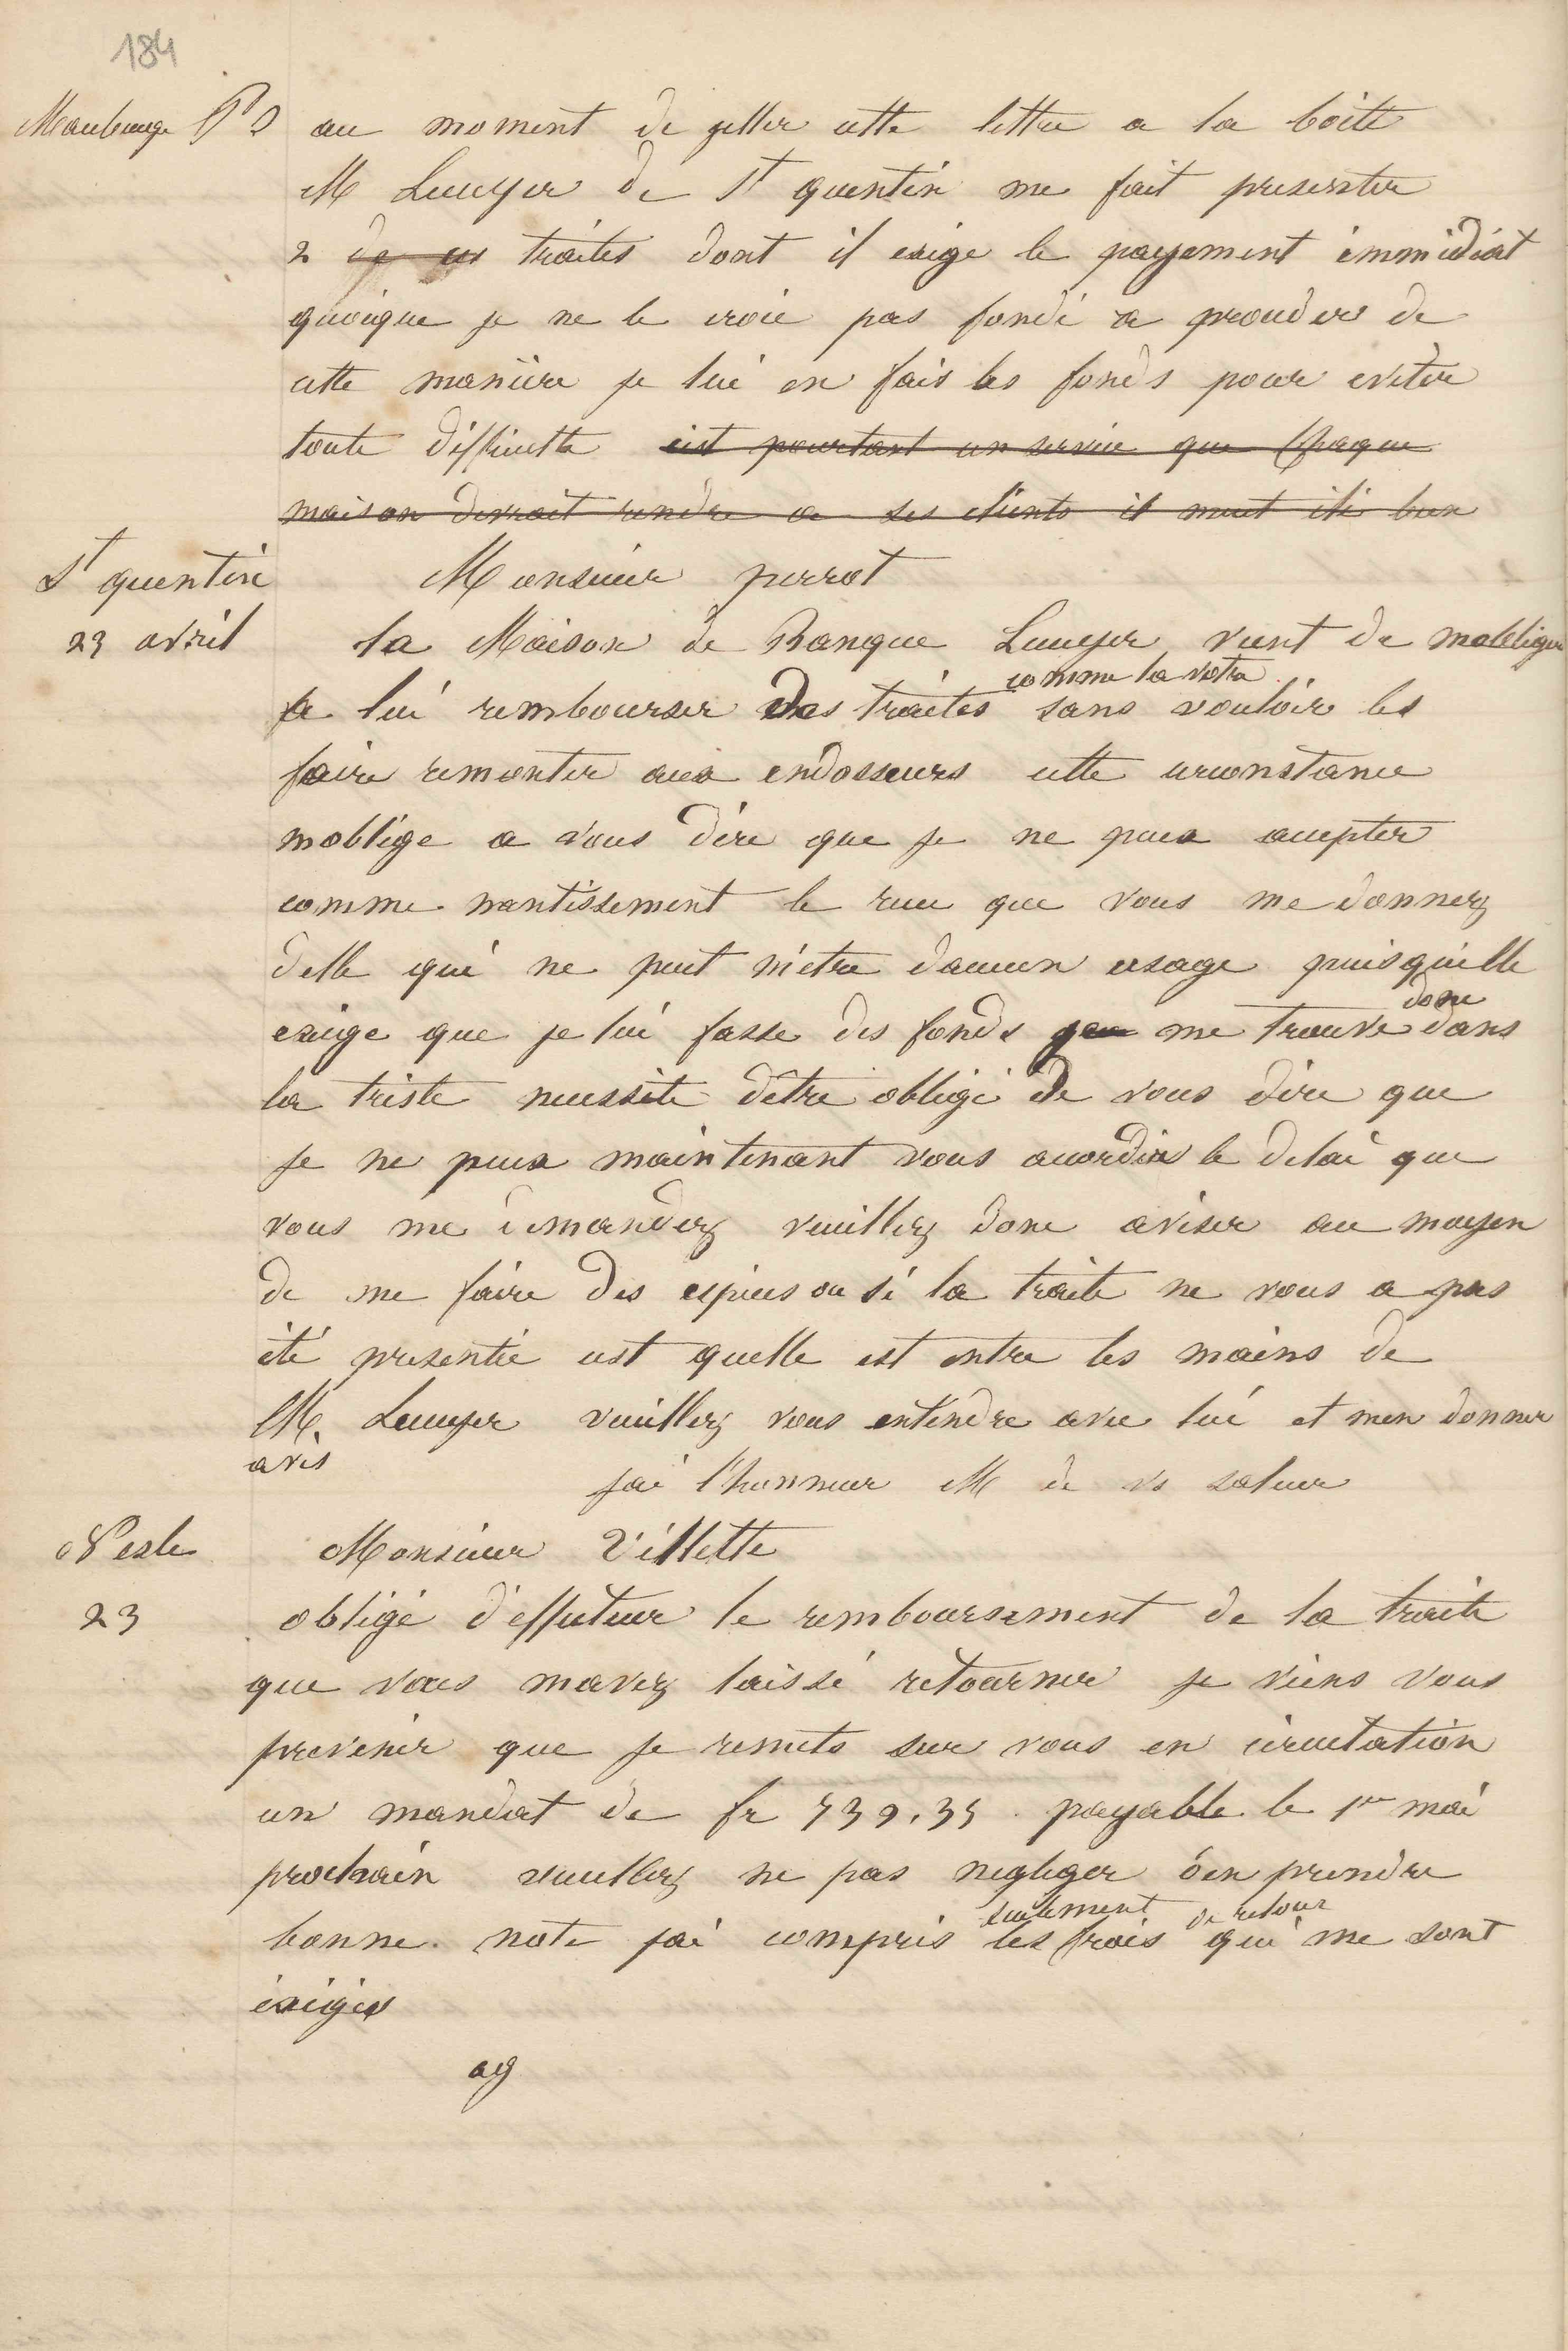 184
Maubeuge P S au moment de jetter cette lettre a la boite
M Lecuyer de St quentin me fait presenter
2 de ces traites dont il exige le payement immédiat
quoique je ne le croie pas fondé a proceder de
cette maniere je lui en fais les fonds pour eviter
toute difficulté cest pourtant un service que chaque
maison devrait rendre a ses clients il meut été bien
St quentin Monsieur perrot
23 avril la Maison de Banque Lecuyer vient de mobliger
comme la votre
a lui rembourser des traites sans vouloir les
faire remonter aux endosseurs cette circonstance
moblige a vous dire que je ne puis accepter
comme nantissement le recu que vous me donnez
delle qui ne peut m'etre daucun usage puisqu'elle
donc
exige que je lui fasse des fonds je me trouve dans
la triste necessite d'être obligé de vous dire que
je ne puis maintenant vous accorder le delai que
vous me demandez veuillez donc aviser au moyen
de me faire des especes ou si la traite ne vous a pas
été presentée cest quelle est entre les mains de
M. Lecuyer veuillez vous entendre avec lui et men donner
avis
jai l'honneur M de vs saluer
Nesle Monsieur Villette
23 obligé d'effectuer le remboursement de la traite
que vous mavez laissé retourner je viens vous
prevenir que je remets sur vous en circulation
un mandat de fr 539,35 payable le 1er mai
prochain veuillez ne pas negliger d'en prendre
seulement de retour
bonne note jai compris les frais qui me sont
exigés
ag